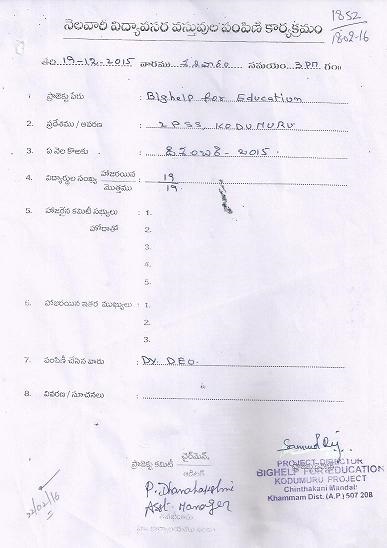 నెలవారీ విద్యావసర వస్తువుల పంపిణీ కార్యక్రమం
1852
1802-16
తేది 19-12-2015 వారము శనివారం సమయం 3PM గం॥
1. ప్రాజెక్టు పేరు : BIghelp for Education
2. ప్రదేశము / ఆవరణ : ZPSS, KODUMURU
3. ఏ నెల కొరకు : డిసెంబర్ - 2015
4. విద్యార్థుల సంఖ్య హాజరయిన : 19
మొత్తము 19
5. హాజరైన కమిటీ సభ్యులు : 1.
హోదాతో 2.
3.
4.
5.
6. హాజరయిన ఇతర ముఖ్యులు : 1.
2.
3.
7. పంపిణీ చేసిన వారు : Dy. DEO.
8. వివరణ / సూచనలు :
ప్రాజెక్టు కమిటీ చైర్మన్
P. Dhanalakshmi
Asst- Manager
22/02/16
PROJECT DIRECTOR
BIGHELP FOR EDUCATION
KODUMURU PROJECT
Chinthakani Mandal
Khammam Dist. (A.P.) 507 208